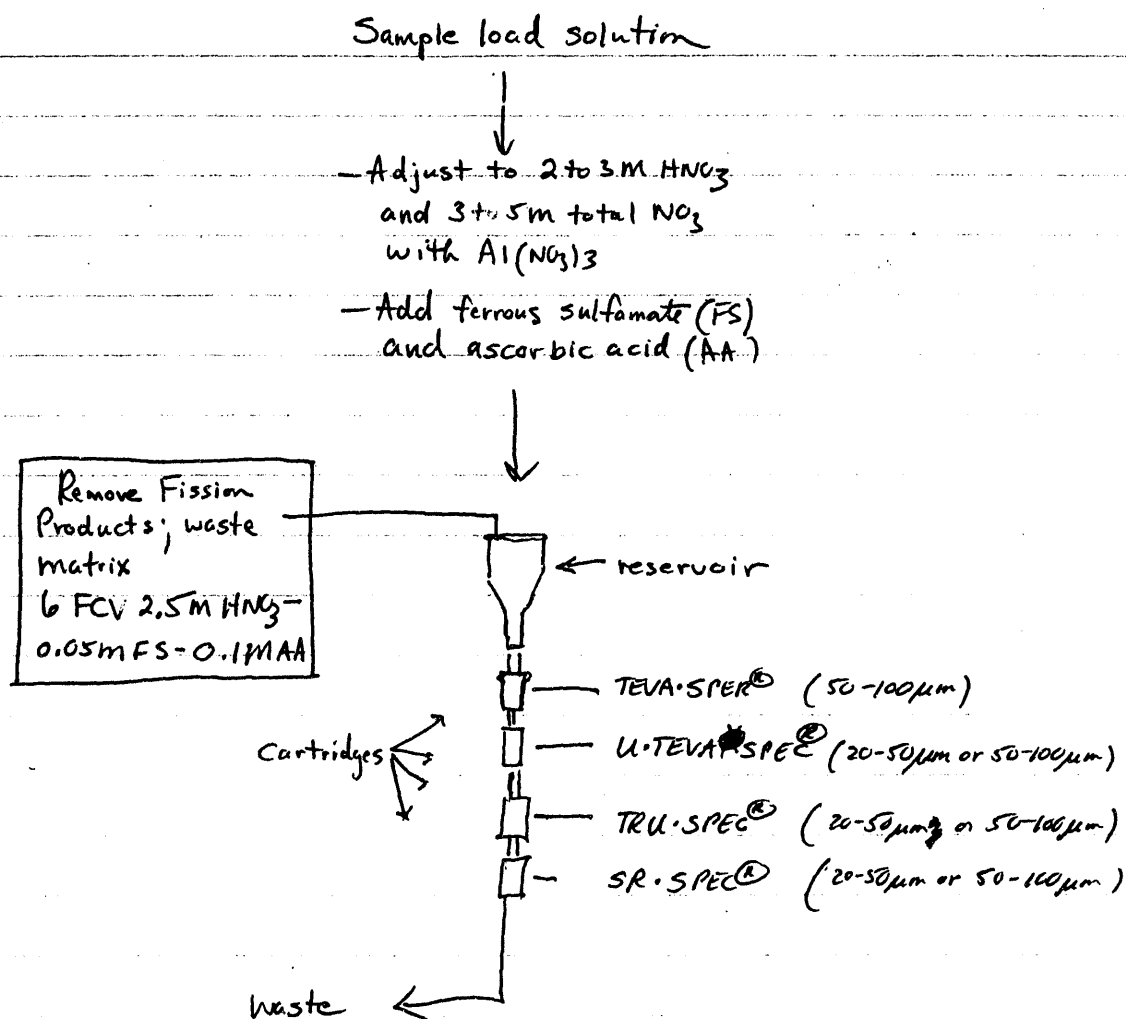 Sample load solution
— Adjust to 2 to 3 M HNO3
and 3 to 5 M total NO3
with Al(NO3)3
— Add ferrous sulfamate (FS)
and ascorbic acid (AA)
Remove Fission
Products; waste
matrix
6 FCV 2.5 M HNO3-
0.05 M FS - 0.1 M AA
← reservoir
TEVA·SPER® (50-100µm)
Cartridges
U·TEVA SPEC® (20-50µm or 50-100µm)
TRU·SPEC® (20-50µm or 50-100µm)
SR·SPEC® (20-50µm or 50-100µm)
Waste